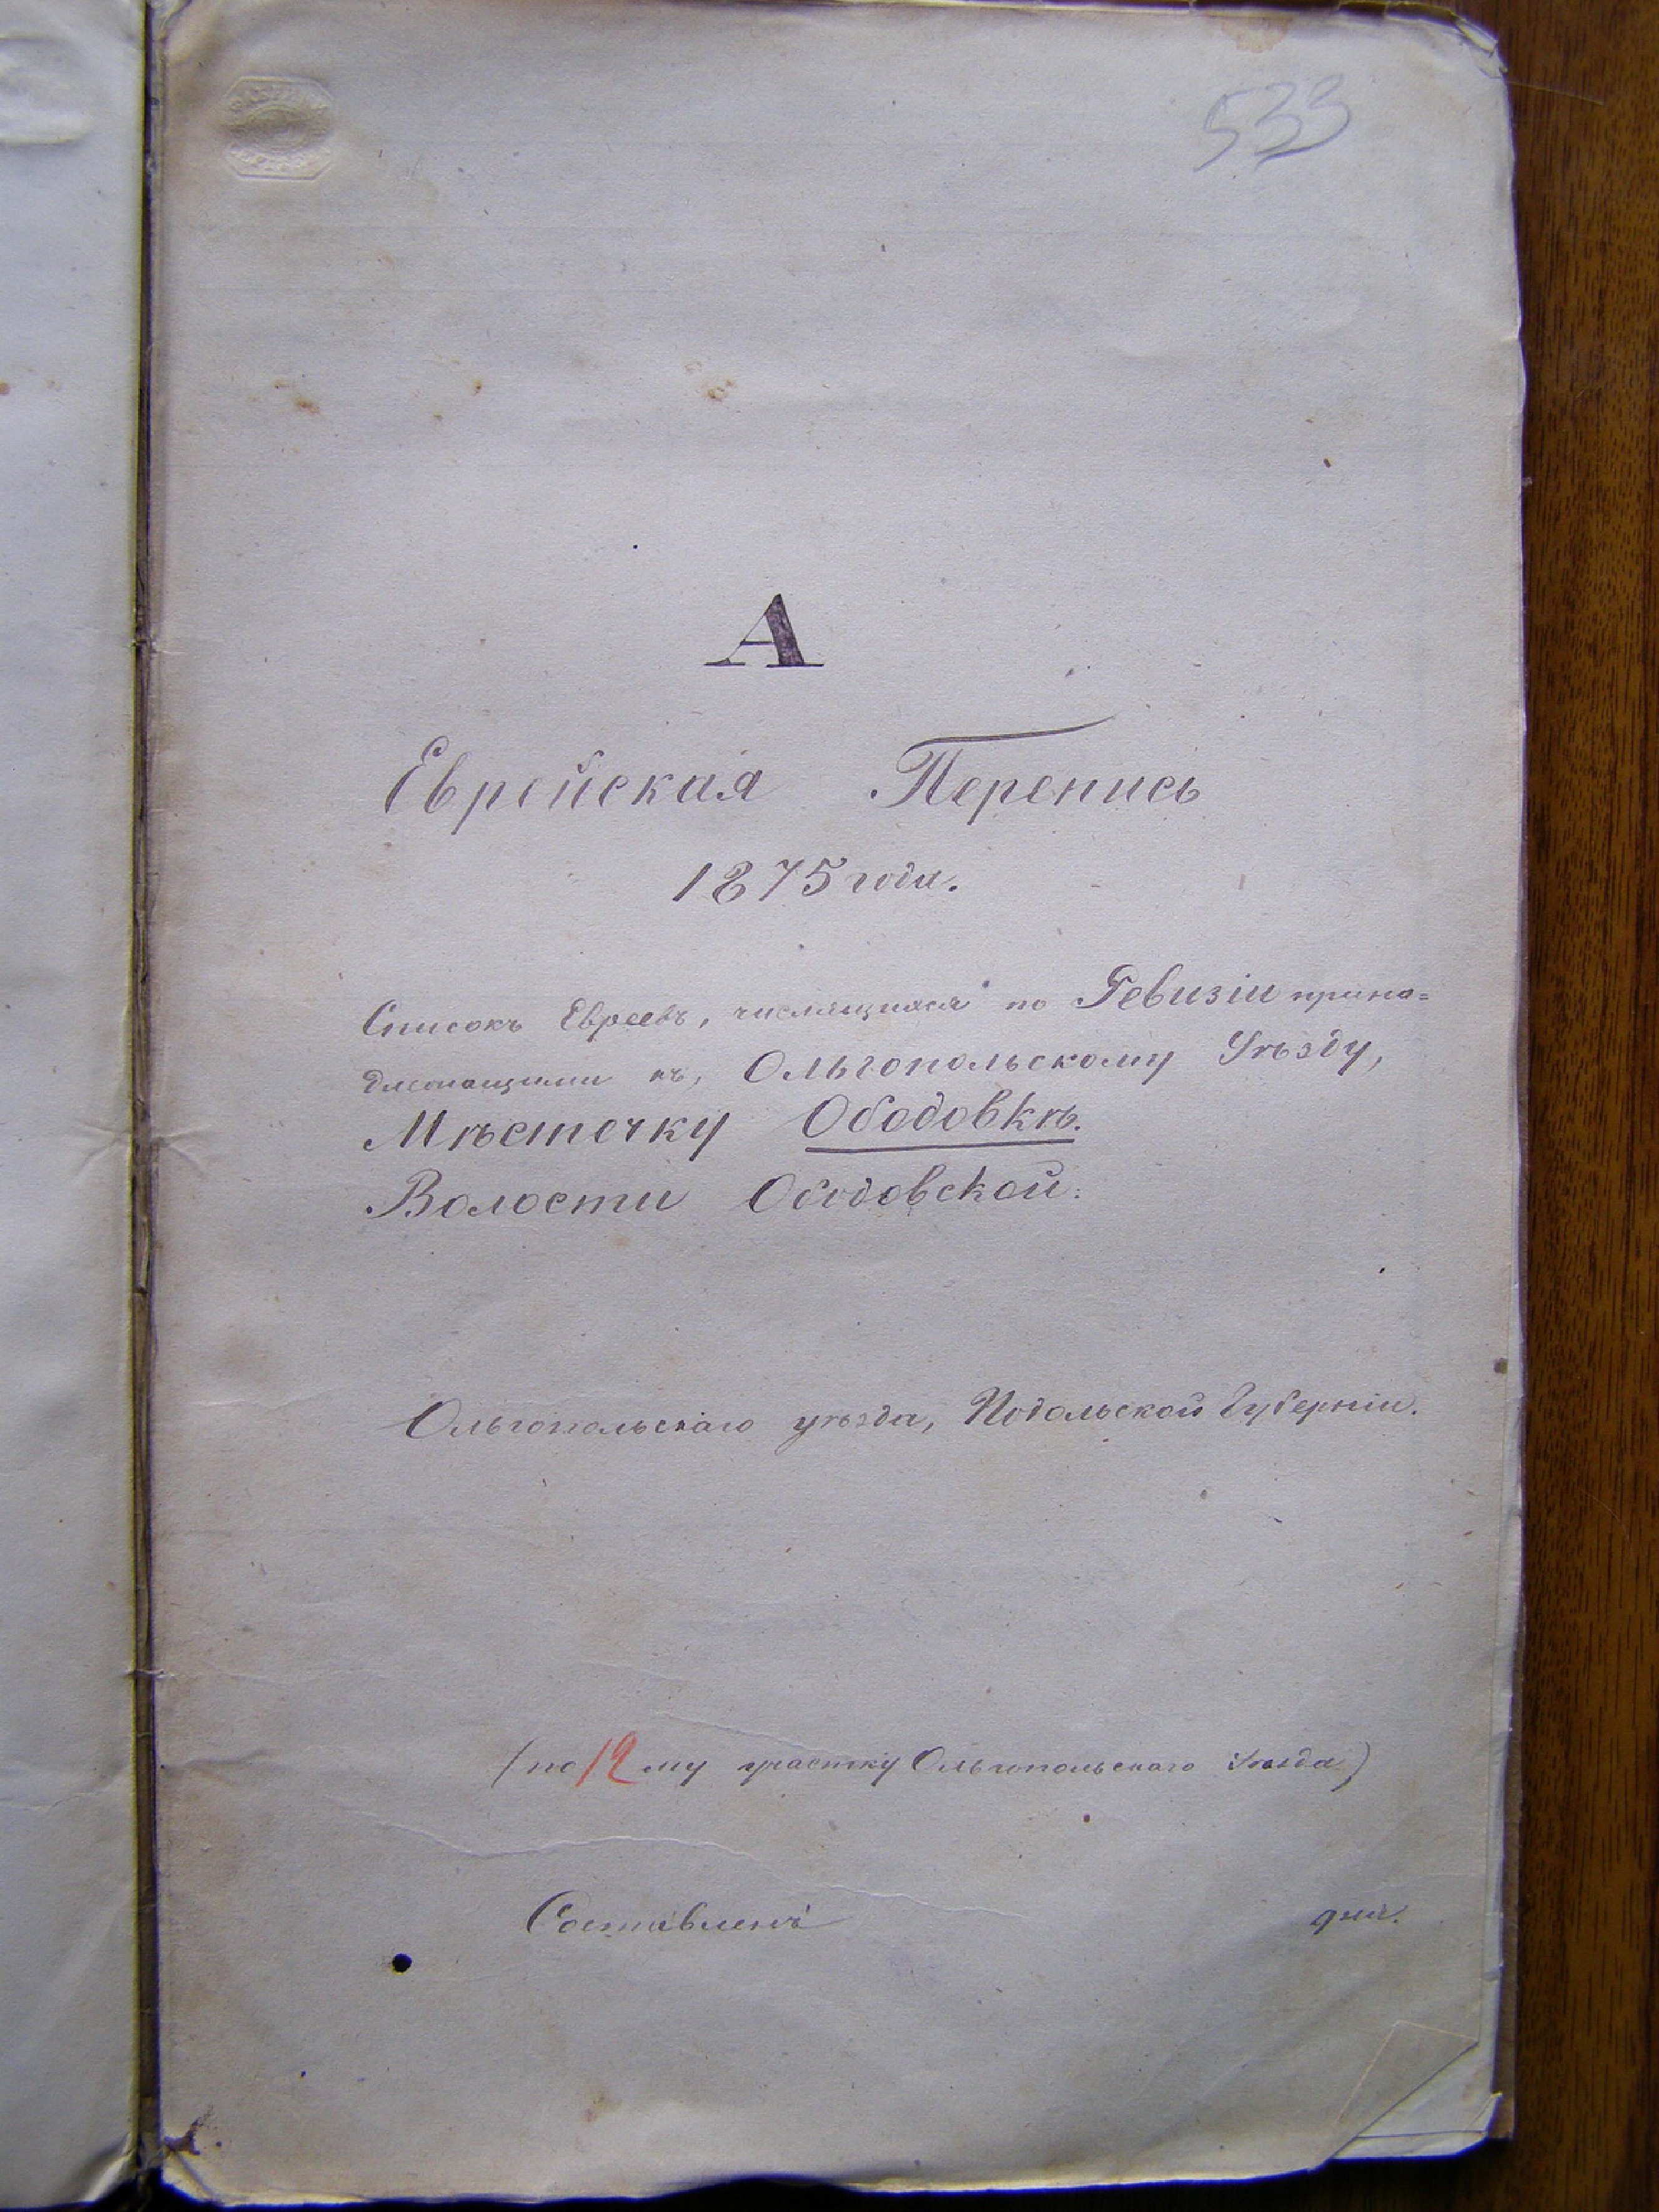 533
А
Еврейская Перепись
1875 года.
Списокъ Евреевъ, числящихся по Ревизіи прина=
длежащими къ, Ольгопольскому Уѣзду,
Мѣстечку Ободовкѣ.
Волости Ободовской.
Ольгопольскаго уѣзда, Подольской Губерніи.
(по 12 му участку Ольгопольскаго Уѣзда)
Составленъ дня.